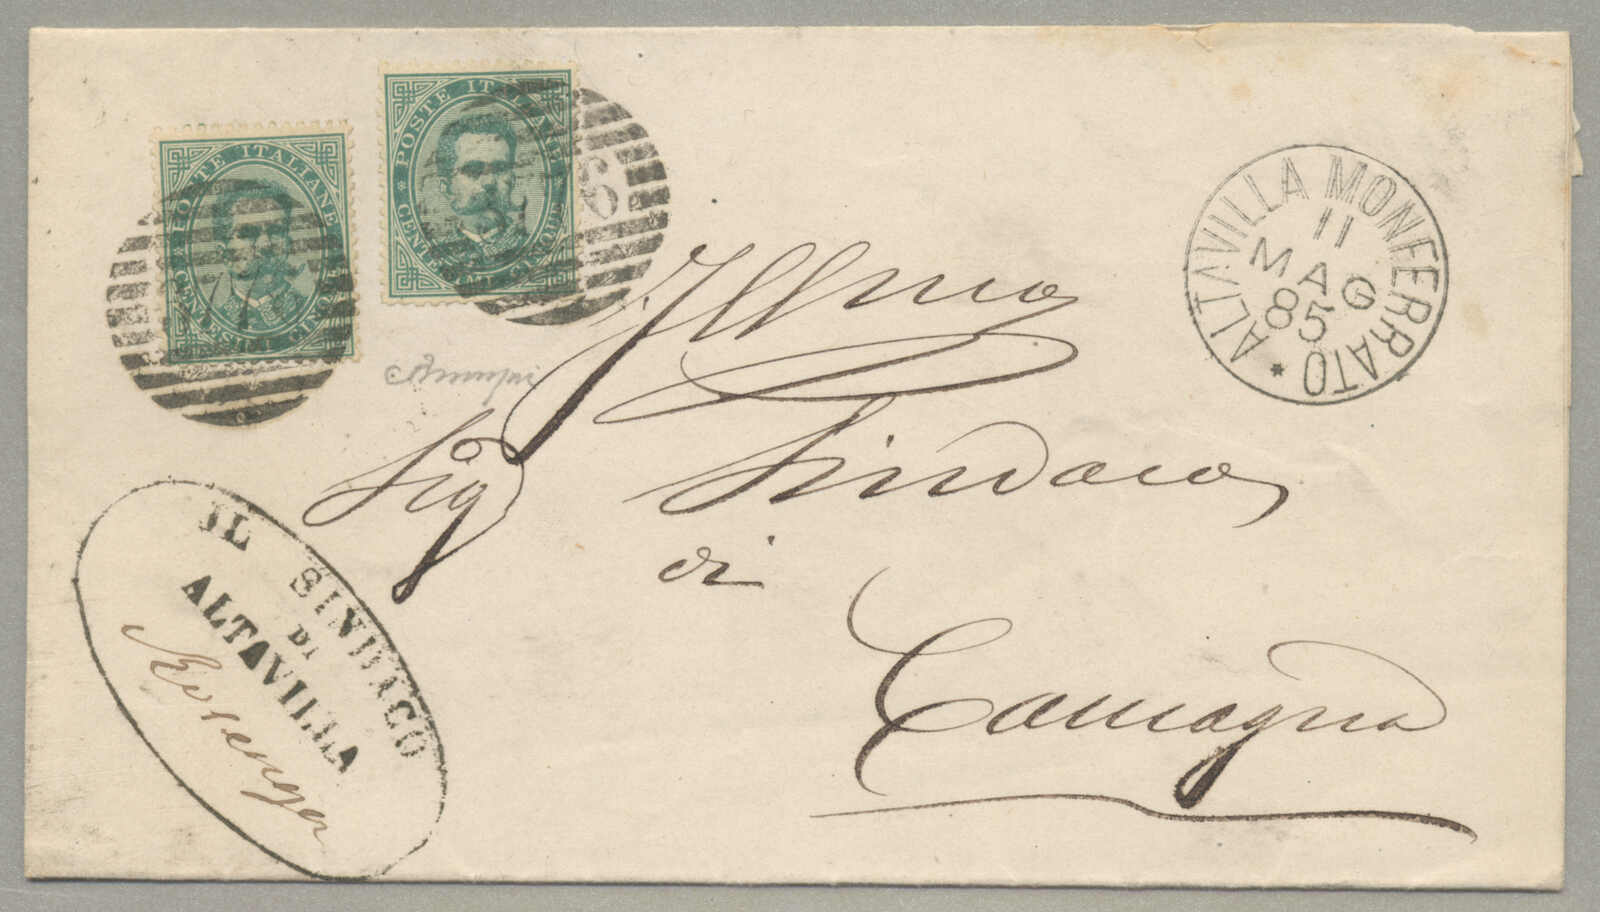 POSTE ITALIANE
CENTESIMI CINQUE
POSTE ITALIANE
CENTESIMI CINQUE
ALTAVILLA MONFERRATO *
11
MAG
85
Illmo
Sig Sindaco
di
Camagna
IL SINDACO
DI
ALTAVILLA